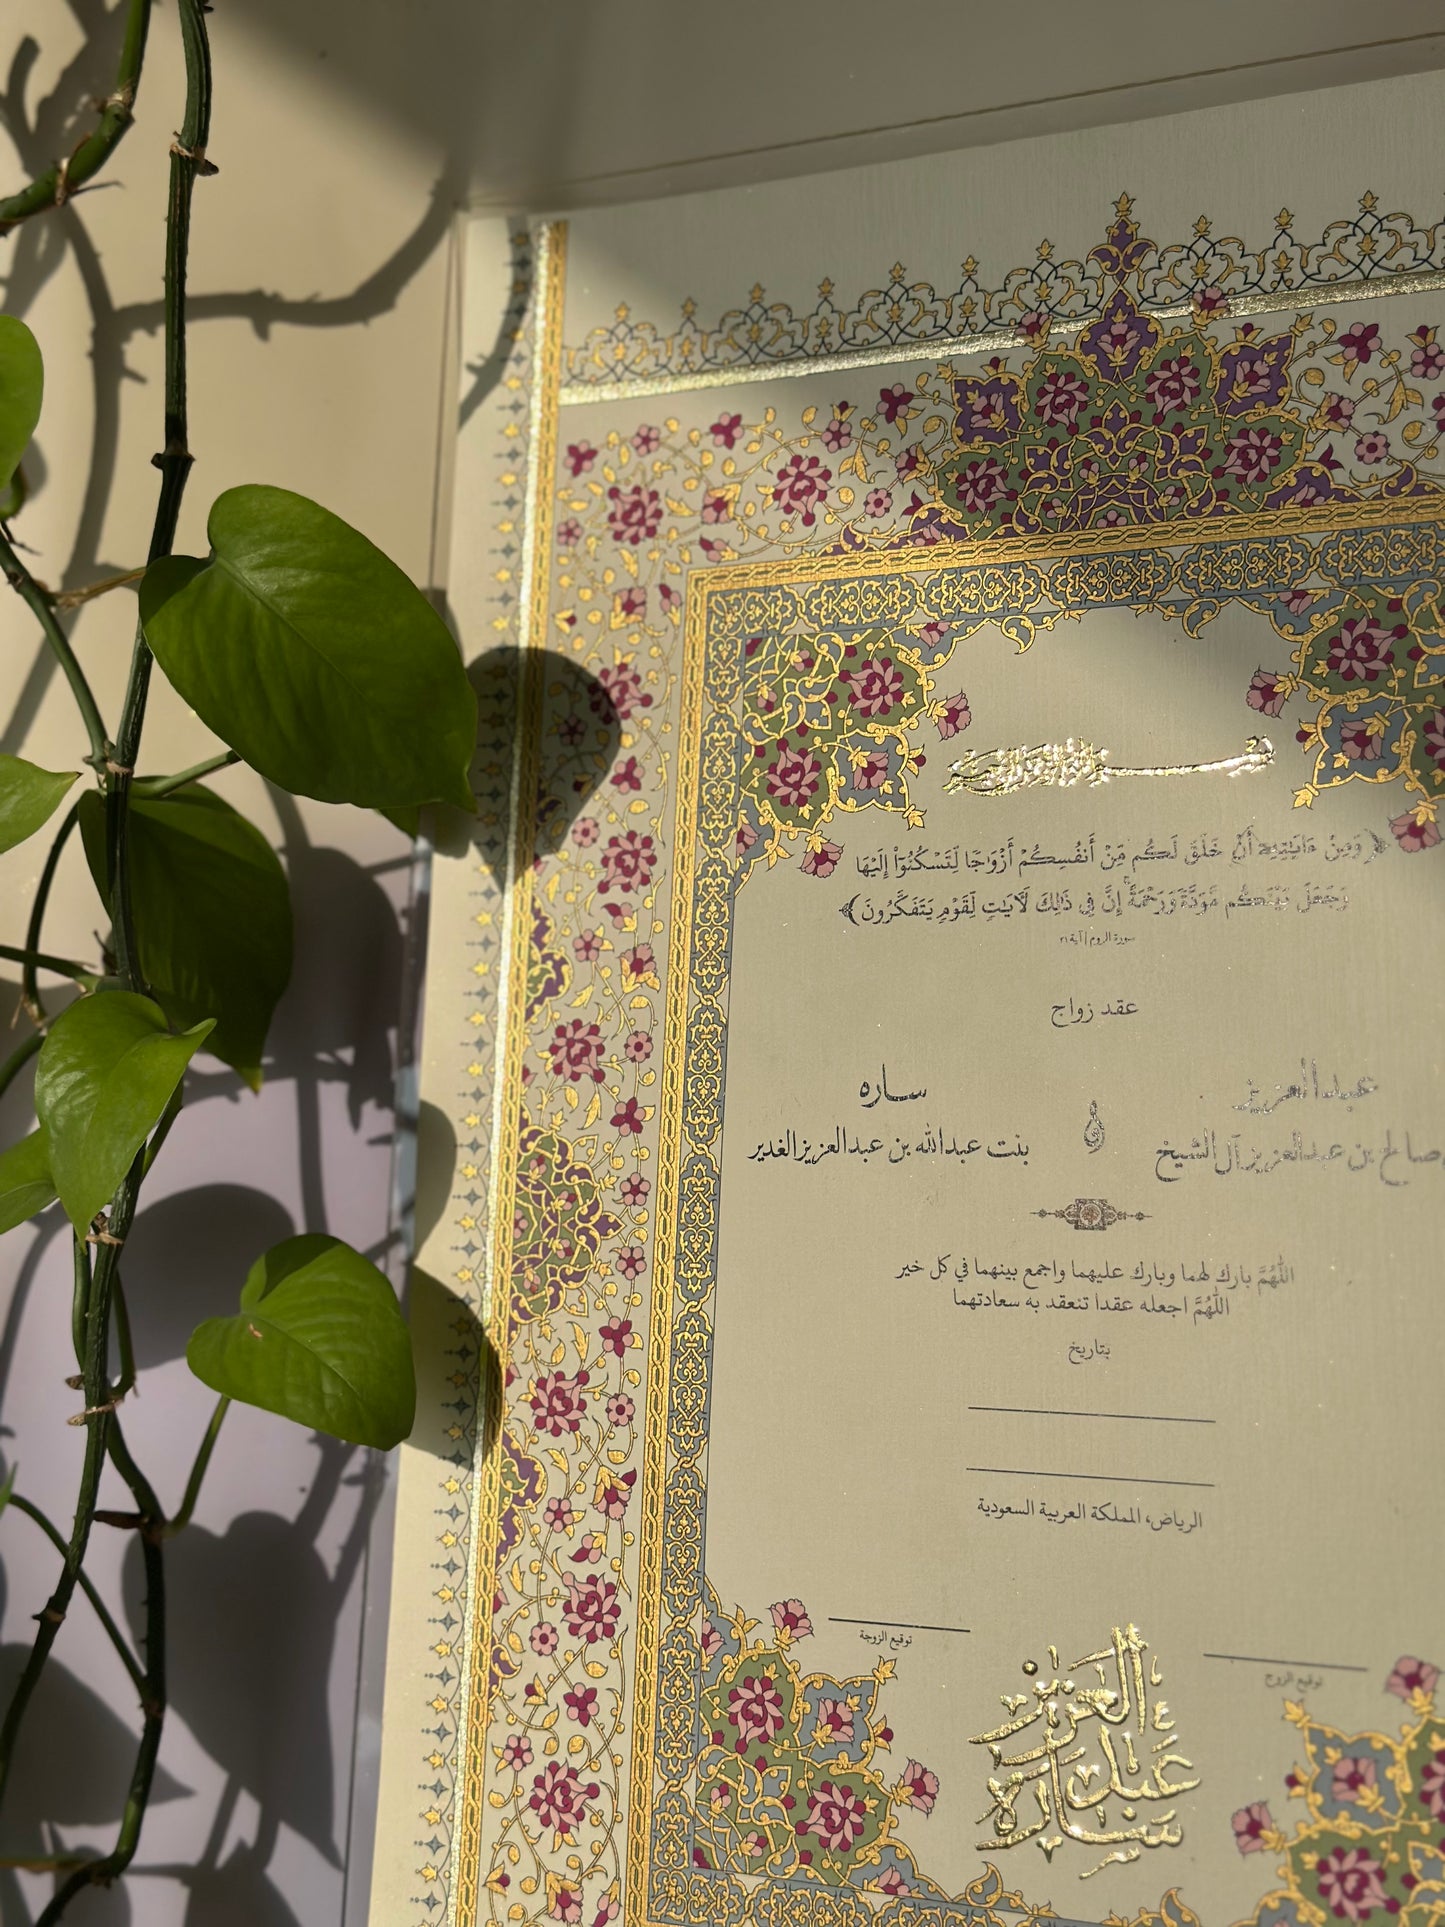 بسم الله الرحمن الرحيم
﴿وَمِنْ ءَايَٰتِهِۦٓ أَنْ خَلَقَ لَكُم مِّنْ أَنفُسِكُمْ أَزْوَٰجًا لِّتَسْكُنُوٓا۟ إِلَيْهَا
وَجَعَلَ بَيْنَكُم مَّوَدَّةً وَرَحْمَةً ۚ إِنَّ فِى ذَٰلِكَ لَـَٔايَٰتٍ لِّقَوْمٍ يَتَفَكَّرُونَ﴾
سورة الروم | آية ٢١
عقد زواج
عبدالعزيز
صالح بن عبدالعزيز آل الشيخ
و
ساره
بنت عبدالله بن عبدالعزيز الغدير
اللَّهُمَّ بارك لهما وبارك عليهما واجمع بينهما في كل خير
اللَّهُمَّ اجعله عقدا تنعقد به سعادتهما
بتاريخ
الرياض، المملكة العربية السعودية
توقيع الزوج
توقيع الزوجة
عبدالعزيز
ساره